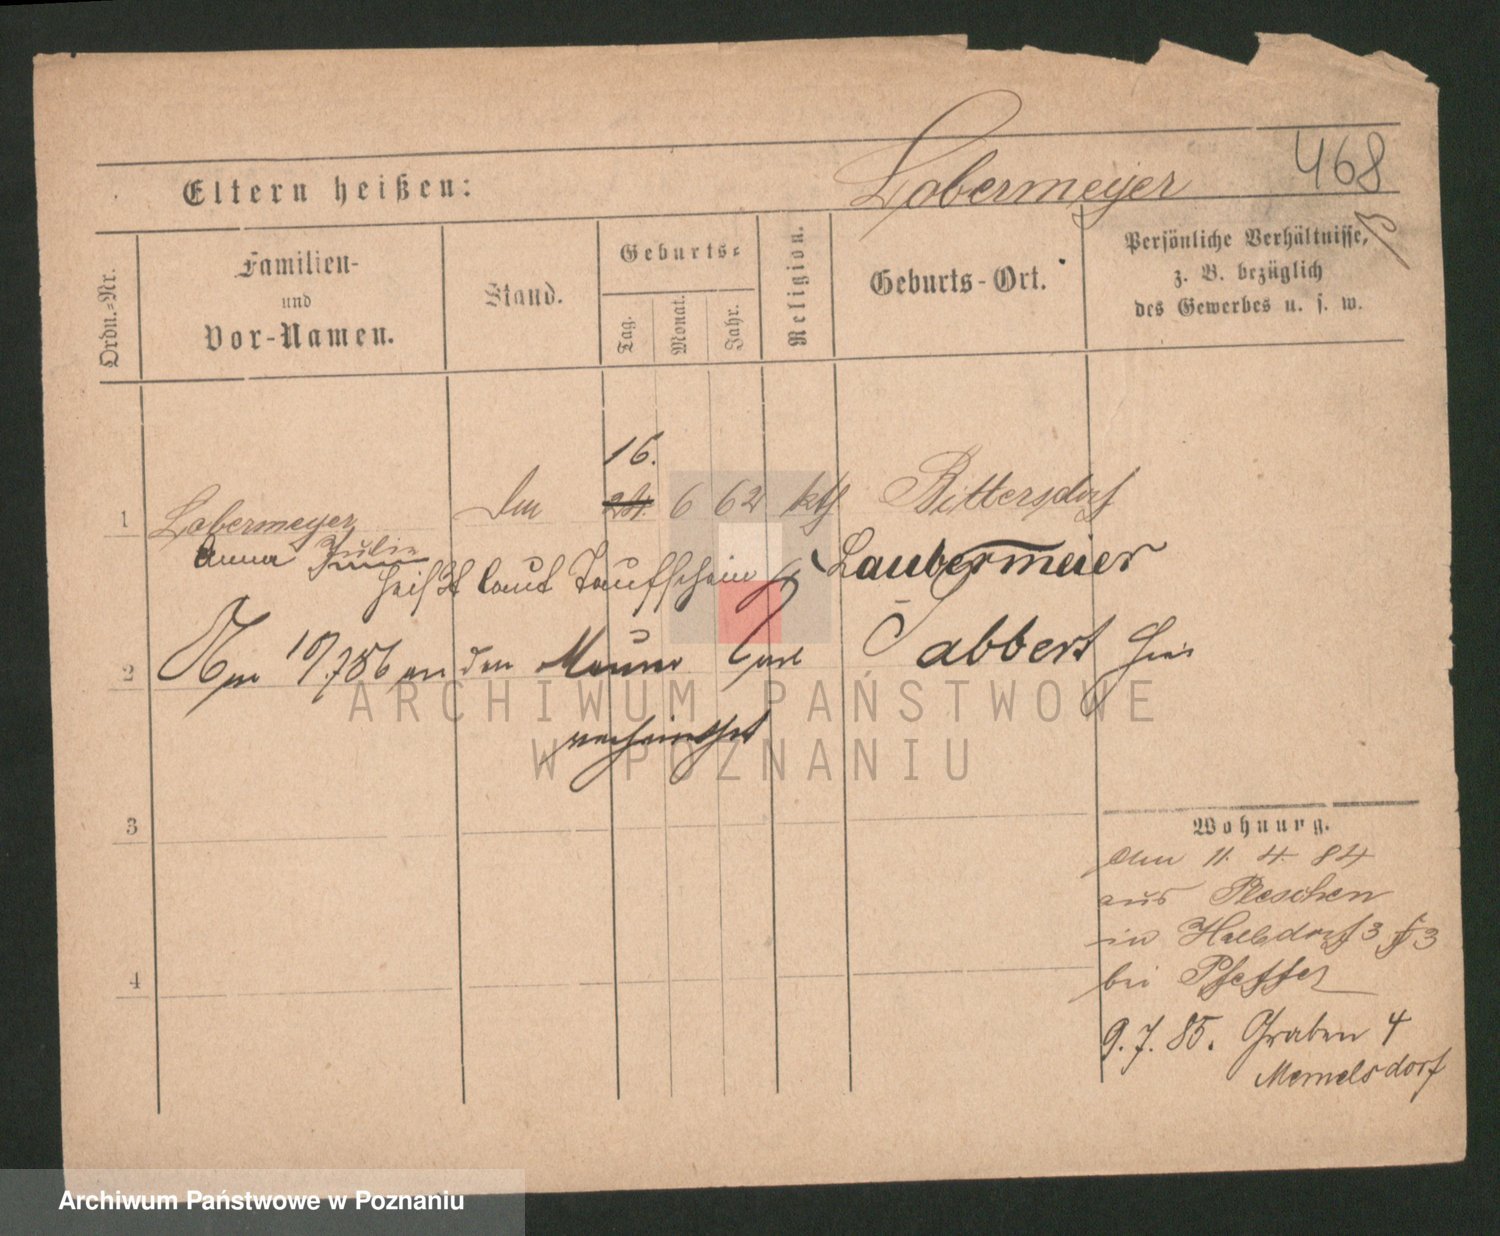 468
Lobermeyer
Eltern heißen:
Ordn.-Nr.
Familien-
und
Vor-Namen.
Stand.
Geburts-
Tag.
Monat.
Jahr.
Religion.
Geburts-Ort.
Persönliche Verhältnisse,
z. B. bezüglich
des Gewerbes u. s. w.
16.
1 Lobermeyer 24. 6 62 kth Bittersdorf
Anna Julie
heißt laut Taufschein Laubermeier
2 Am 10/7 86 an den Maurer Carl Tabbert hier
verheirathet
3
4
Wohnung.
Am 11. 4. 84
aus Pleschen
in Halbdorf 3
bei Pfeffer
9. 7. 85. Graben 4
Memelsdorf
ARCHIWUM PAŃSTWOWE
W POZNANIU
Archiwum Państwowe w Poznaniu